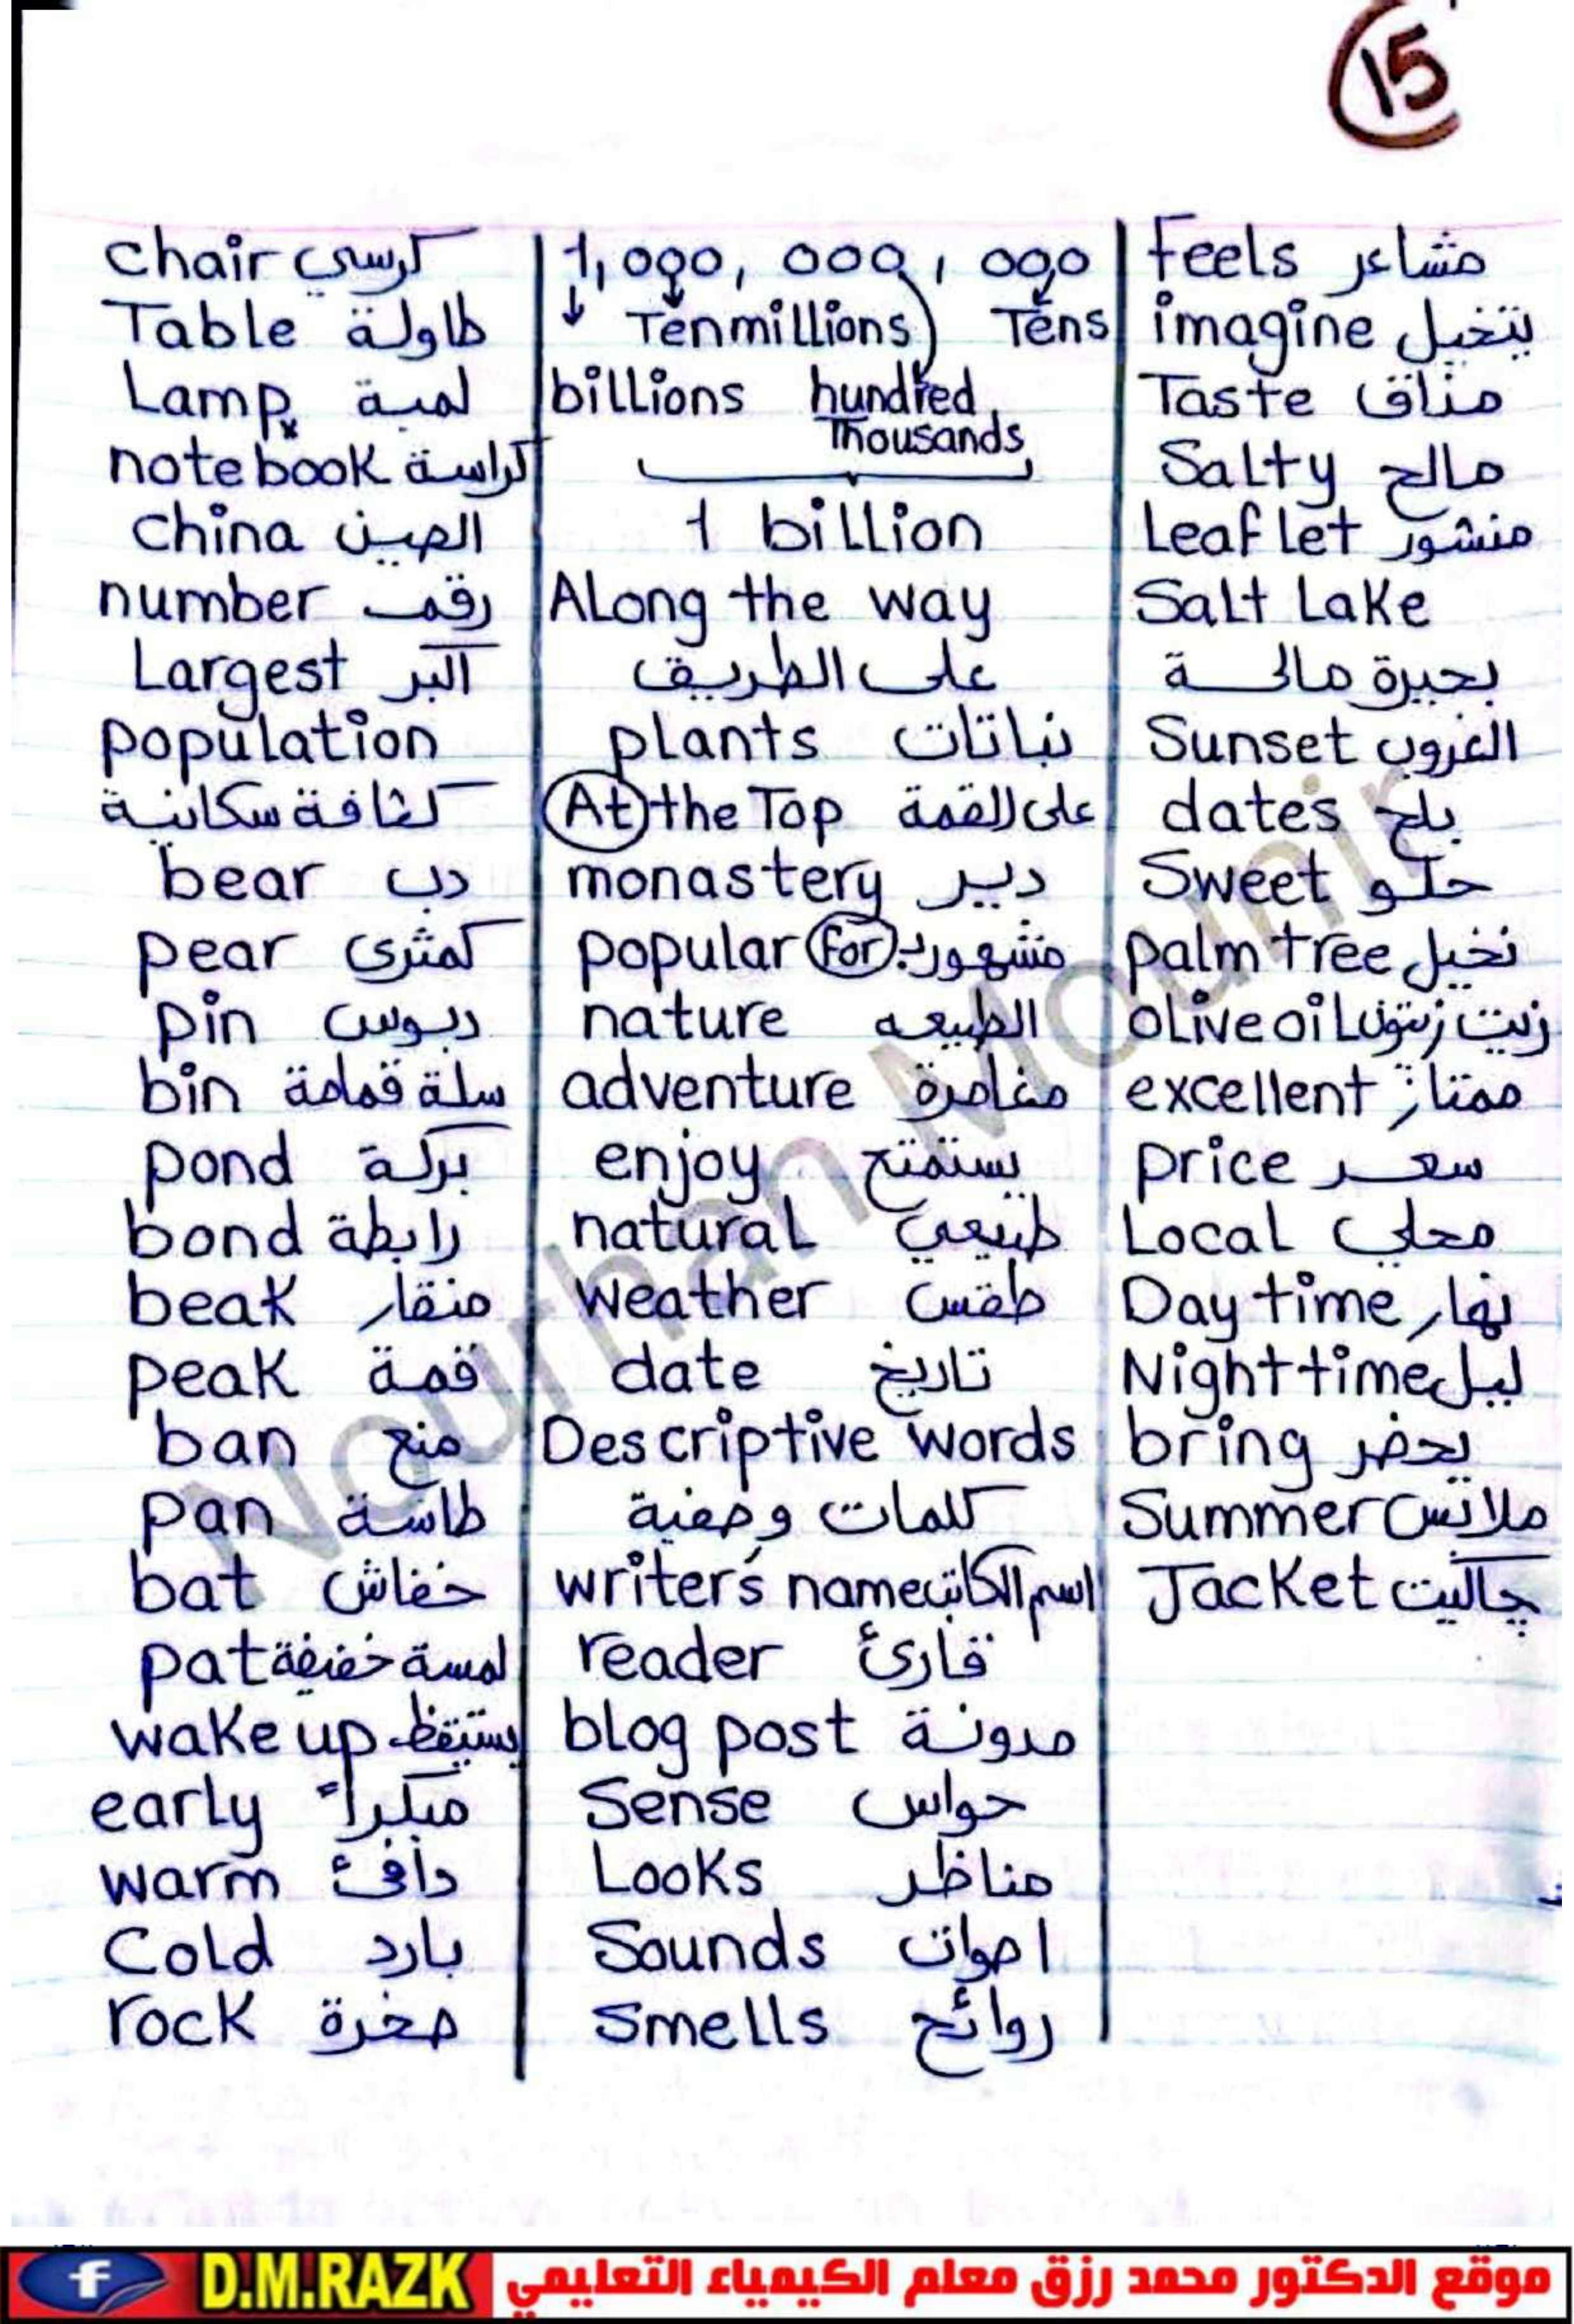 15
chair كرسي
Table طاولة
Lamp لمبة
notebook كراسة
china الصين
number رقم
Largest اكبر
population
كثافة سكانية
bear دب
pear كمثرى
pin دبوس
bin سلة قمامة
pond بركة
bond رابطة
beak منقار
peak قمة
ban منع
pan طاسة
bat خفاش
pat لمسة خفيفة
wake up يستيقظ
early مبكراً
warm دافئ
Cold بارد
rock صخرة
1,000,000,000
Ten millions Tens
billions hundred
Thousands
1 billion
Along the way
على الطريق
plants نباتات
At the Top على القمة
monastery دير
popular for مشهور بـ
nature الطبيعه
adventure مغامرة
enjoy يستمتع
natural طبيعي
weather طقس
date تاريخ
Descriptive words
كلمات وصفية
writer's name اسم الكاتب
reader قارئ
blog post مدونة
Sense حواس
Looks مناظر
Sounds اصوات
Smells روائح
Feels مشاعر
imagine يتخيل
Taste مذاق
Salty مالح
Leaflet منشور
Salt Lake
بحيرة مالحة
Sunset الغروب
dates بلح
Sweet حلو
palm tree نخيل
olive oil زيت زيتون
excellent ممتاز
price سعر
Local محلي
Day time نهار
Night time ليل
bring يحضر
Summer ملابس
Jacket جاكيت
Nourhan Mounir
D.M.RAZK موقع الدكتور محمد رزق معلم الكيمياء التعليمي